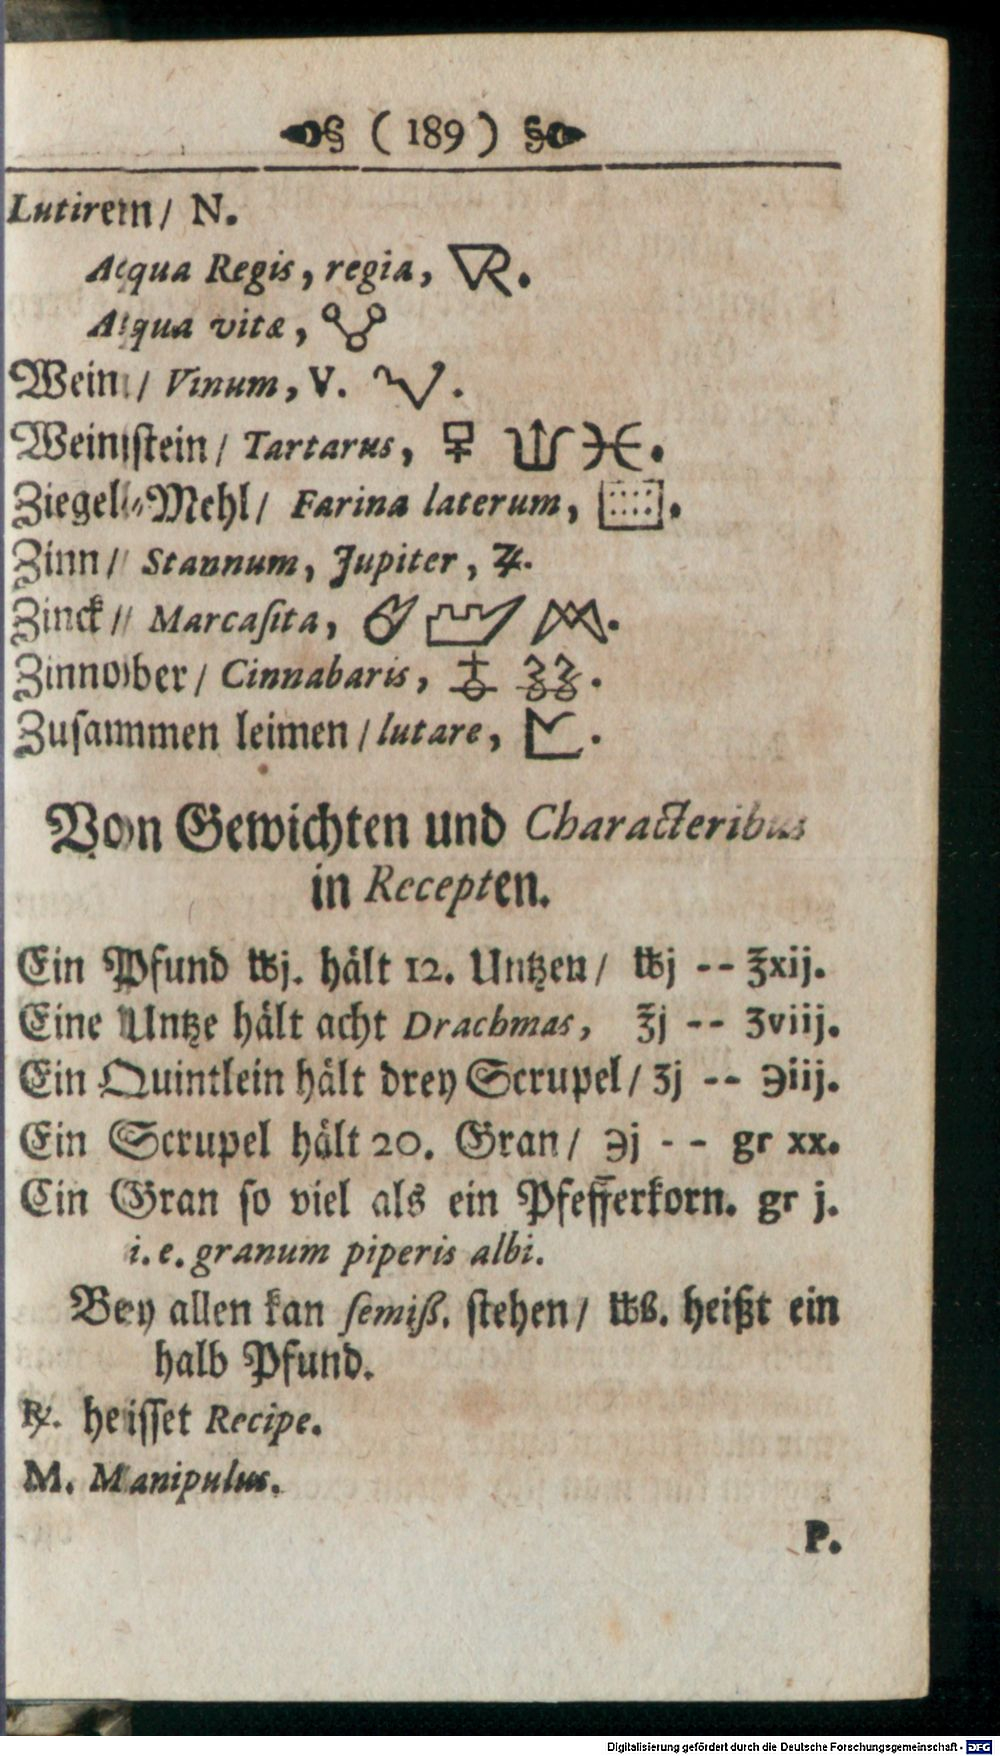 ( 189 )
Lutirem / N.
Aqua Regis, regia, .
Aqua vitæ,
Wein / Vinum, V. .
Weinstein / Tartarus, .
Ziegel⸗Mehl / Farina laterum, .
Zinn / Stannum, Jupiter, ♃.
Zinck / Marcaſita, .
Zinnober / Cinnabaris, .
Zuſammen leimen / lutare, .
Von Gewichten und Characteribus
in Recepten.
Ein Pfund ℔j. hält 12. Untzen / ℔j -- ℥xij.
Eine Untze hält acht Drachmas, ℥j -- ʒviij.
Ein Quintlein hält drey Scrupel / ʒj -- ℈iij.
Ein Scrupel hält 20. Gran / ℈j - - gr xx.
Ein Gran ſo viel als ein Pfefferkorn. gr j.
i. e. granum piperis albi.
Bey allen kan ſemiß. ſtehen / ℔ß. heißt ein
halb Pfund.
℞. heiſſet Recipe.
M. Manipulus.
P.
Digitalisierung gefördert durch die Deutsche Forschungsgemeinschaft - DFG